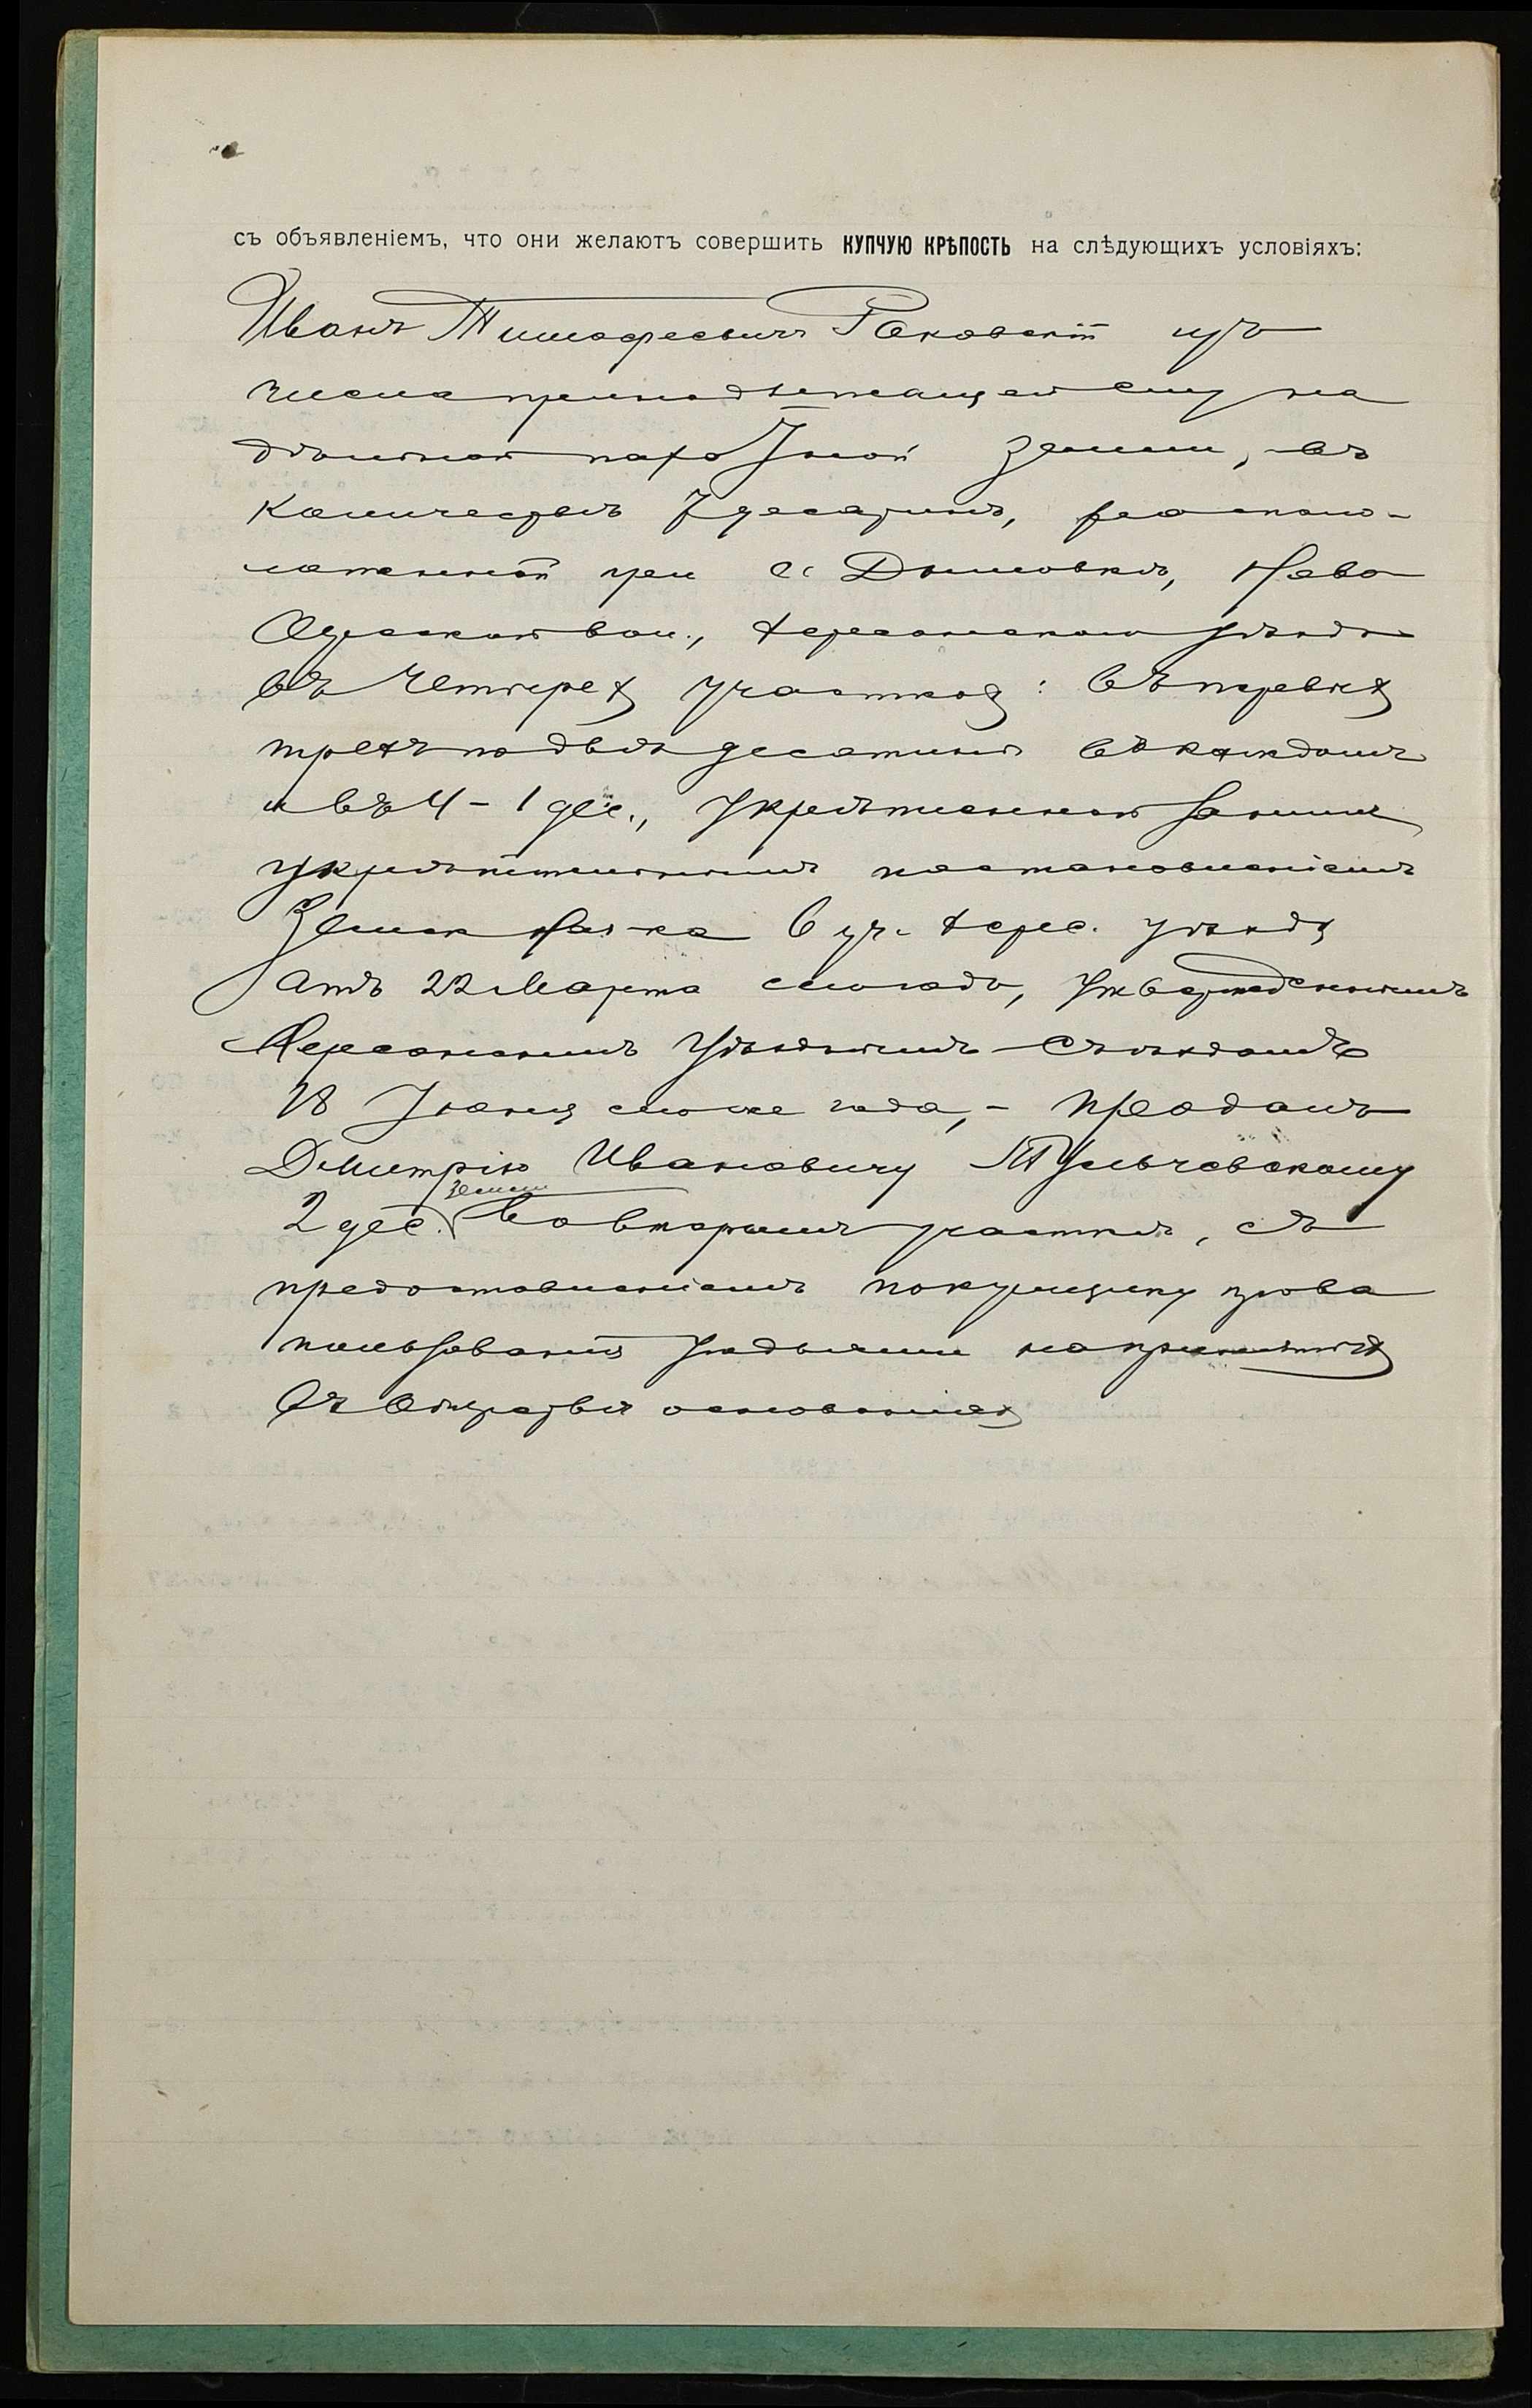 съ объявленіемъ, что они желаютъ совершить КУПЧУЮ КРѢПОСТЬ на слѣдующихъ условіяхъ:
Иванъ Тимофеевичъ Раковскій изъ
числа принадлежащей ему на
дѣльной пахотной земли, въ
количествѣ 7 десятинъ, располо-
женной при с. Дымовкѣ, Ново
Одесской вол., Херсонскаго уѣзда
въ четырех участках: въ первых
трехъ по двѣ десятины въ каждомъ
и въ 4 - 1 дес., укрѣпленной за ним
укрѣпительнымъ постановленіемъ
Земск Нач-ка 6 уч. Херс. уѣзда
отъ 22 Марта с. года, утвержденнымъ
Херсонскимъ Уѣзднымъ Съѣздомъ
18 Іюня сего же года, - продалъ
Дмитрію Ивановичу Тульчевскому
2 дес. земли во второмъ участкѣ, съ
предоставленіемъ покупщику права
пользованія угодьями на принятых
въ обществѣ основаніях